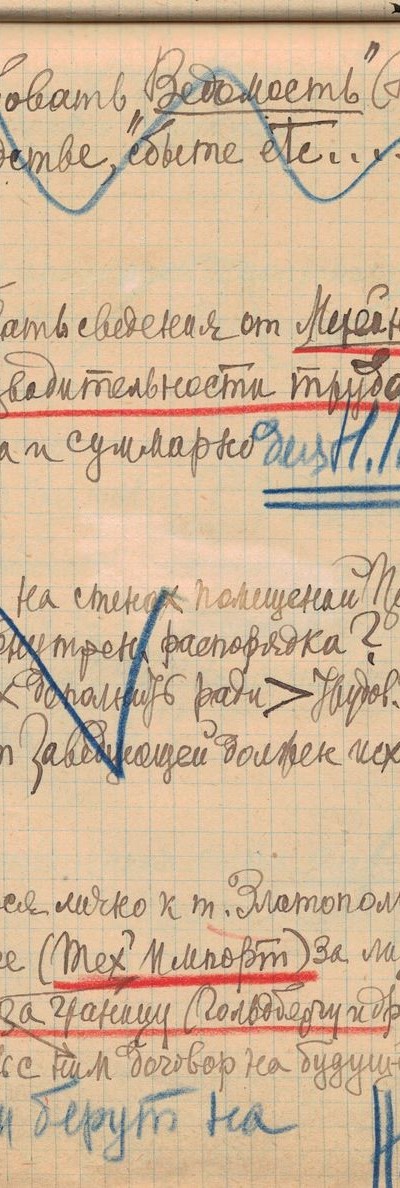 овать „Ведомость" (
дстве, "сбыте etc....
ать сведения от
зводительности трубо
а и суммарно без Н.
на стенах помещений
внутрен. распорядка?
дополнить ради >
Заведующей должен исх
ся лично к т. Златопол
е (Тех Импорт) за
за границу (Гольдбергу и др
с ним договор на будущ
и берут на